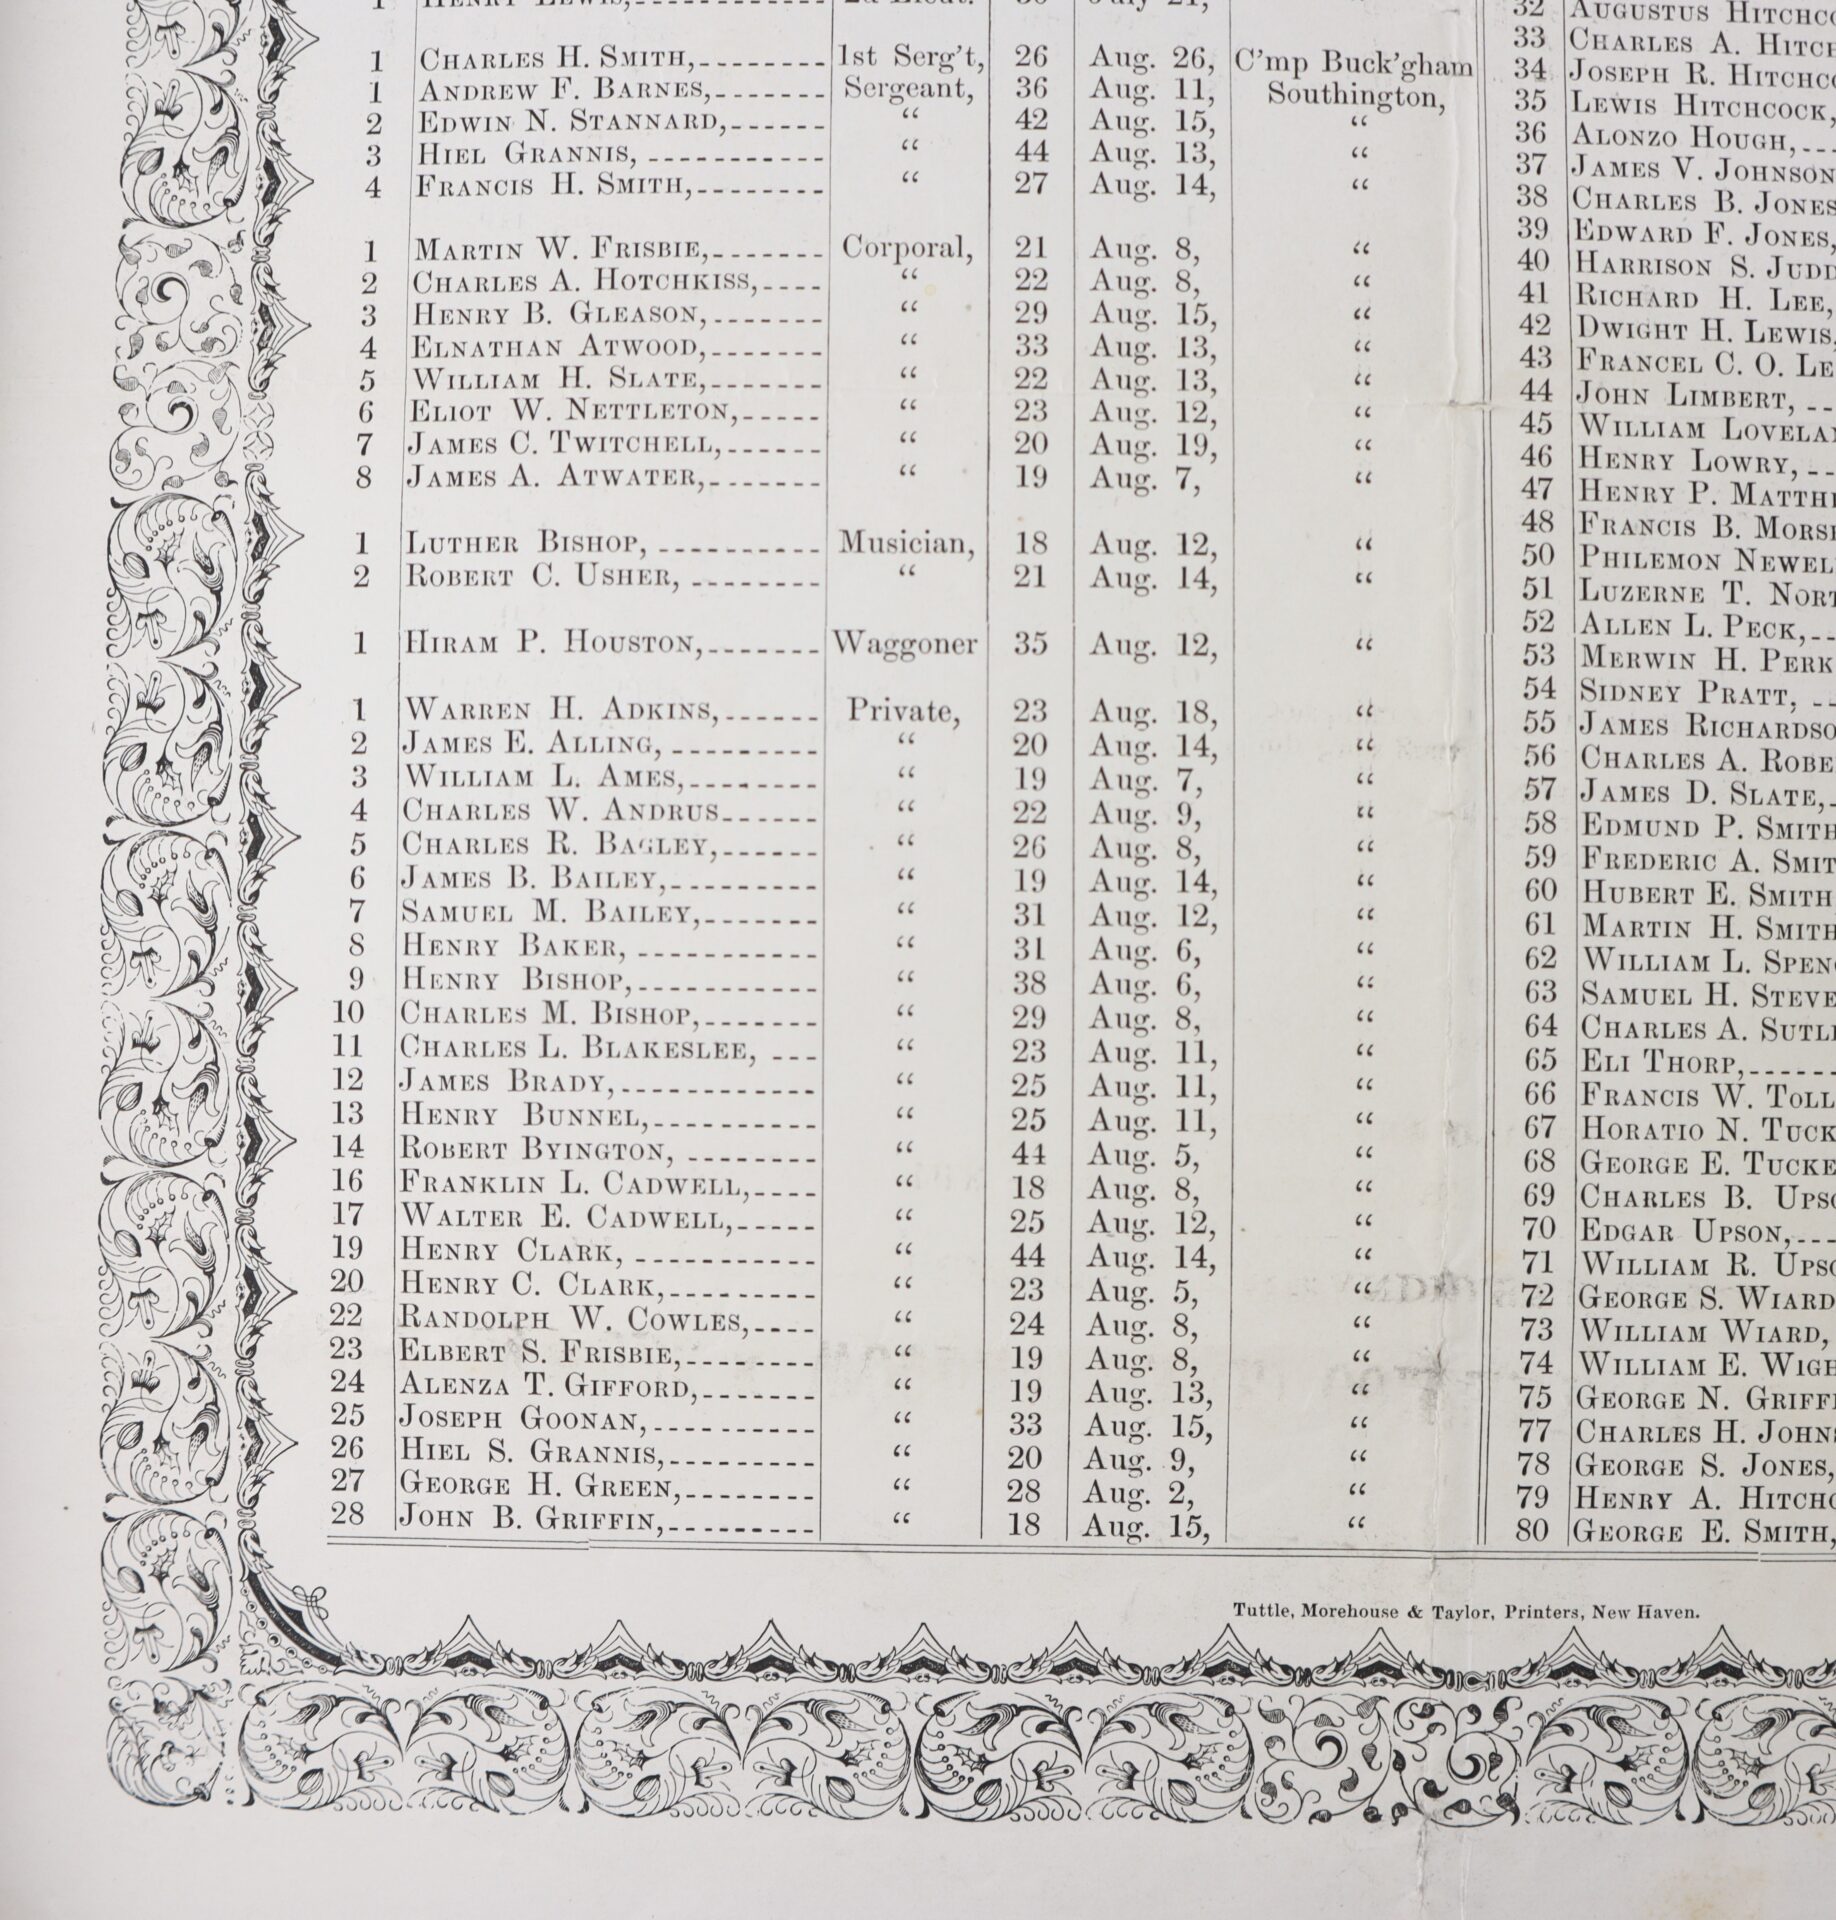 1 HENRY LEWIS, 2d Lieut. 30 July 21, “
1 CHARLES H. SMITH, 1st Serg't, 26 Aug. 26, C'mp Buck'gham
1 ANDREW F. BARNES, Sergeant, 36 Aug. 11, Southington,
2 EDWIN N. STANNARD, “ 42 Aug. 15, “
3 HIEL GRANNIS, “ 44 Aug. 13, “
4 FRANCIS H. SMITH, “ 27 Aug. 14, “
1 MARTIN W. FRISBIE, Corporal, 21 Aug. 8, “
2 CHARLES A. HOTCHKISS, “ 22 Aug. 8, “
3 HENRY B. GLEASON, “ 29 Aug. 15, “
4 ELNATHAN ATWOOD, “ 33 Aug. 13, “
5 WILLIAM H. SLATE, “ 22 Aug. 13, “
6 ELIOT W. NETTLETON, “ 23 Aug. 12, “
7 JAMES C. TWITCHELL, “ 20 Aug. 19, “
8 JAMES A. ATWATER, “ 19 Aug. 7, “
1 LUTHER BISHOP, Musician, 18 Aug. 12, “
2 ROBERT C. USHER, “ 21 Aug. 14, “
1 HIRAM P. HOUSTON, Waggoner 35 Aug. 12, “
1 WARREN H. ADKINS, Private, 23 Aug. 18, “
2 JAMES E. ALLING, “ 20 Aug. 14, “
3 WILLIAM L. AMES, “ 19 Aug. 7, “
4 CHARLES W. ANDRUS “ 22 Aug. 9, “
5 CHARLES R. BAGLEY, “ 26 Aug. 8, “
6 JAMES B. BAILEY, “ 19 Aug. 14, “
7 SAMUEL M. BAILEY, “ 31 Aug. 12, “
8 HENRY BAKER, “ 31 Aug. 6, “
9 HENRY BISHOP, “ 38 Aug. 6, “
10 CHARLES M. BISHOP, “ 29 Aug. 8, “
11 CHARLES L. BLAKESLEE, “ 23 Aug. 11, “
12 JAMES BRADY, “ 25 Aug. 11, “
13 HENRY BUNNEL, “ 25 Aug. 11, “
14 ROBERT BYINGTON, “ 44 Aug. 5, “
16 FRANKLIN L. CADWELL, “ 18 Aug. 8, “
17 WALTER E. CADWELL, “ 25 Aug. 12, “
19 HENRY CLARK, “ 44 Aug. 14, “
20 HENRY C. CLARK, “ 23 Aug. 5, “
22 RANDOLPH W. COWLES, “ 24 Aug. 8, “
23 ELBERT S. FRISBIE, “ 19 Aug. 8, “
24 ALENZA T. GIFFORD, “ 19 Aug. 13, “
25 JOSEPH GOONAN, “ 33 Aug. 15, “
26 HIEL S. GRANNIS, “ 20 Aug. 9, “
27 GEORGE H. GREEN, “ 28 Aug. 2, “
28 JOHN B. GRIFFIN, “ 18 Aug. 15, “
32 AUGUSTUS HITCHCO
33 CHARLES A. HITCH
34 JOSEPH R. HITCHCO
35 LEWIS HITCHCOCK,
36 ALONZO HOUGH,
37 JAMES V. JOHNSON
38 CHARLES B. JONES
39 EDWARD F. JONES,
40 HARRISON S. JUDD
41 RICHARD H. LEE,
42 DWIGHT H. LEWIS,
43 FRANCEL C. O. LE
44 JOHN LIMBERT,
45 WILLIAM LOVELAN
46 HENRY LOWRY,
47 HENRY P. MATTHE
48 FRANCIS B. MORSE
50 PHILEMON NEWEL
51 LUZERNE T. NORT
52 ALLEN L. PECK,
53 MERWIN H. PERK
54 SIDNEY PRATT,
55 JAMES RICHARDSO
56 CHARLES A. ROBE
57 JAMES D. SLATE,
58 EDMUND P. SMITH
59 FREDERIC A. SMIT
60 HUBERT E. SMITH
61 MARTIN H. SMITH
62 WILLIAM L. SPENC
63 SAMUEL H. STEVE
64 CHARLES A. SUTLI
65 ELI THORP,
66 FRANCIS W. TOLL
67 HORATIO N. TUCK
68 GEORGE E. TUCKE
69 CHARLES B. UPSO
70 EDGAR UPSON,
71 WILLIAM R. UPSO
72 GEORGE S. WIARD
73 WILLIAM WIARD,
74 WILLIAM E. WIGH
75 GEORGE N. GRIFFI
77 CHARLES H. JOHNS
78 GEORGE S. JONES,
79 HENRY A. HITCHC
80 GEORGE E. SMITH,
Tuttle, Morehouse & Taylor, Printers, New Haven.